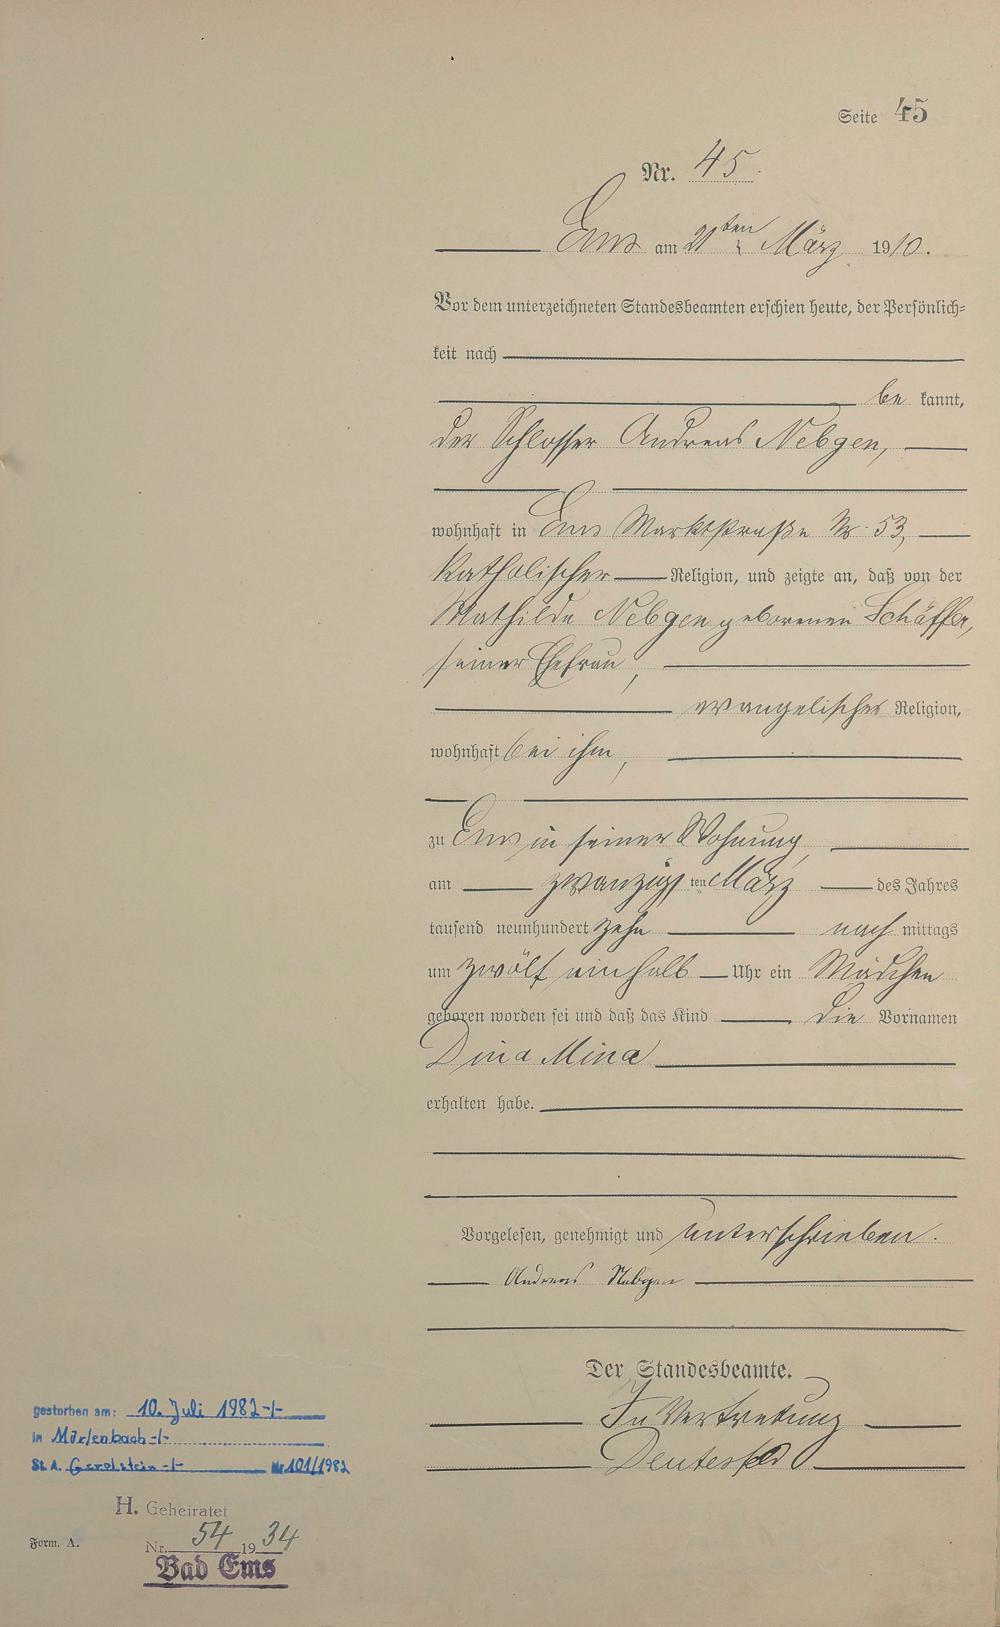 Seite 45
Nr. 45.
Ems am 21ten März 1910.
Vor dem unterzeichneten Standesbeamten erschien heute, der Persönlich-
keit nach
be kannt,
der Schlosser Andreas Nebgen,
wohnhaft in Ems Marktstraße No. 53,
katholischer Religion, und zeigte an, daß von der
Mathilde Nebgen geborenen Schäffer,
seiner Ehefrau,
evangelischer Religion,
wohnhaft bei ihm,
zu Ems in seiner Wohnung
am zwanzigsten März des Jahres
tausend neunhundert zehn nach mittags
um zwölf einhalb Uhr ein Mädchen
geboren worden sei und daß das Kind die Vornamen
Dina Mina
erhalten habe.
Vorgelesen, genehmigt und unterschrieben.
Andreas Nebgen
Der Standesbeamte.
In Vertretung
gestorben am: 10. Juli 1982-/-
in Mürlenbach -/-
St. A. Gerolstein -/- Nr 101/1982
H. Geheiratet
Nr. 54 1934
Bad Ems
Form. A.